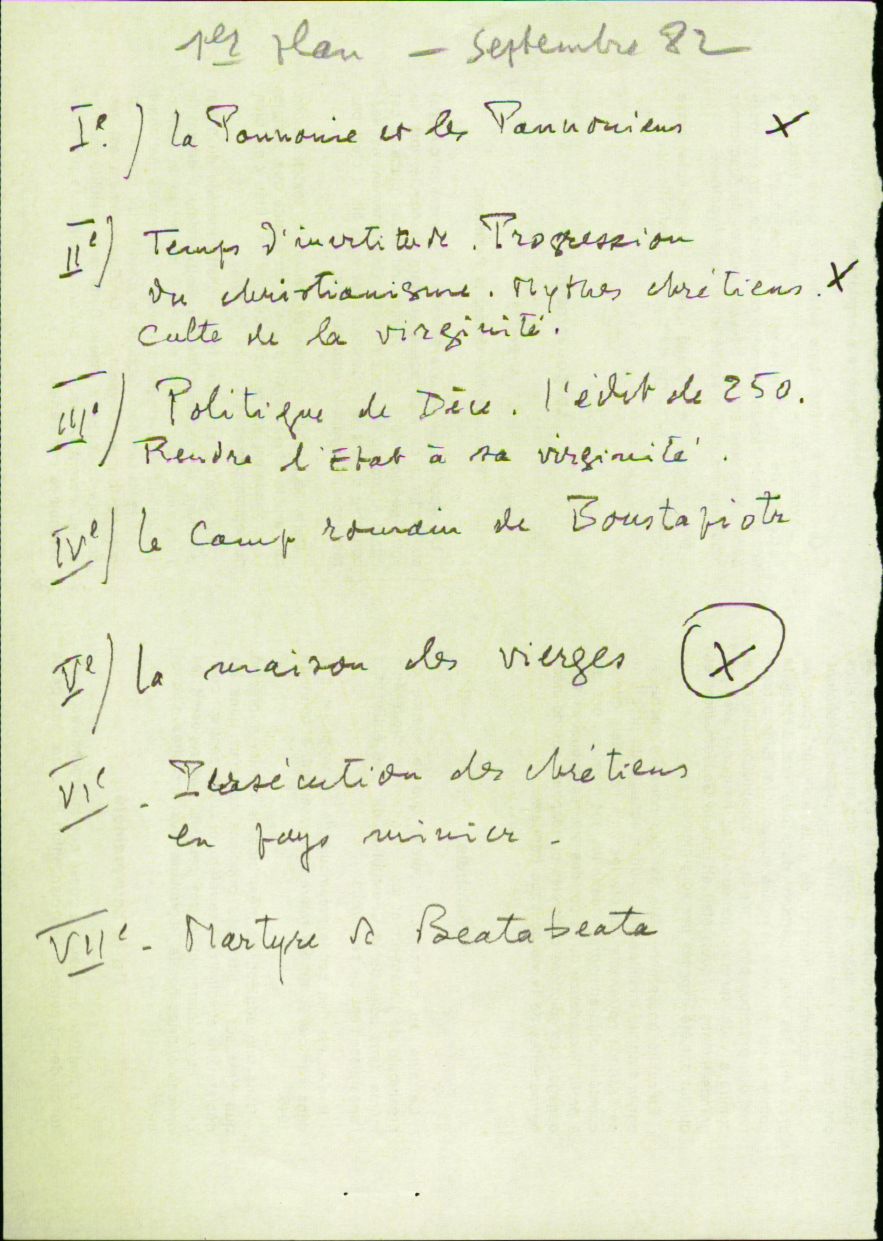 1er Plan — Septembre 82
Ie.) la Pannonie et les Pannoniens X
IIe) Temps d'incertitude. Progression
du christianisme. Mythes chrétiens. X
Culte de la virginité.
IIIe) Politique de Dèce. l'édit de 250.
Rendre l'Etat à sa virginité.
IVe) le Camp romain de Boustapiotr
Ve) la maison des vierges X
VIe - Persécution des chrétiens
en pays minier -
VIIe - Martyre de Beatabeata